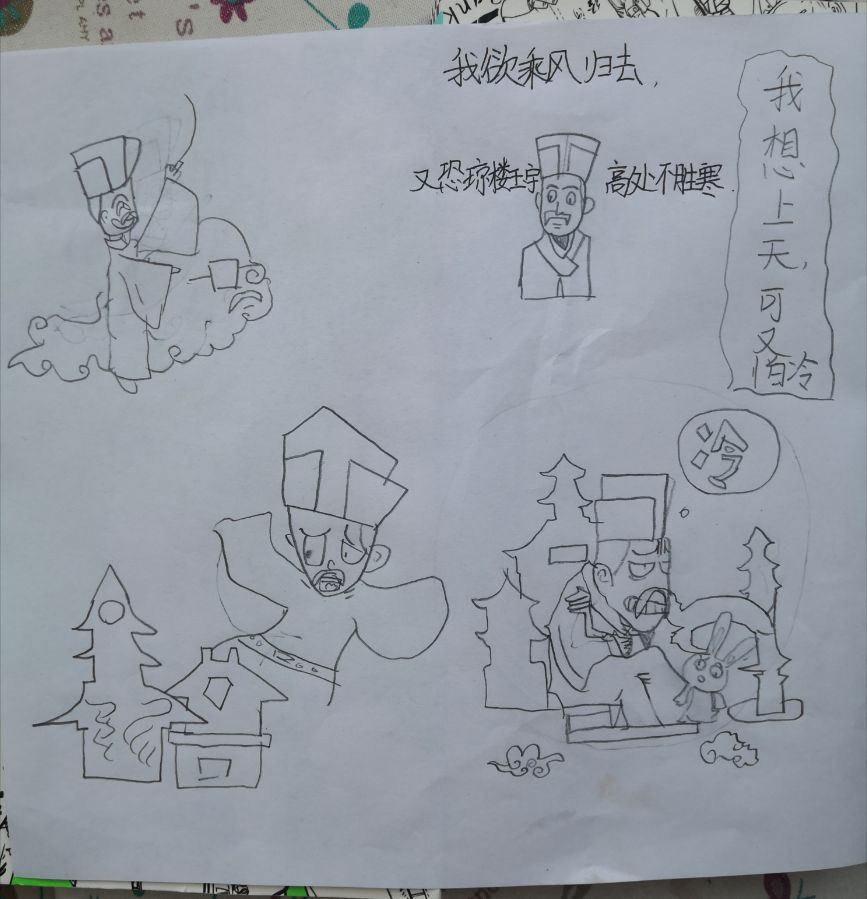 我欲乘风归去，
又恐琼楼玉宇
高处不胜寒.
我想上天，可又怕冷
冷